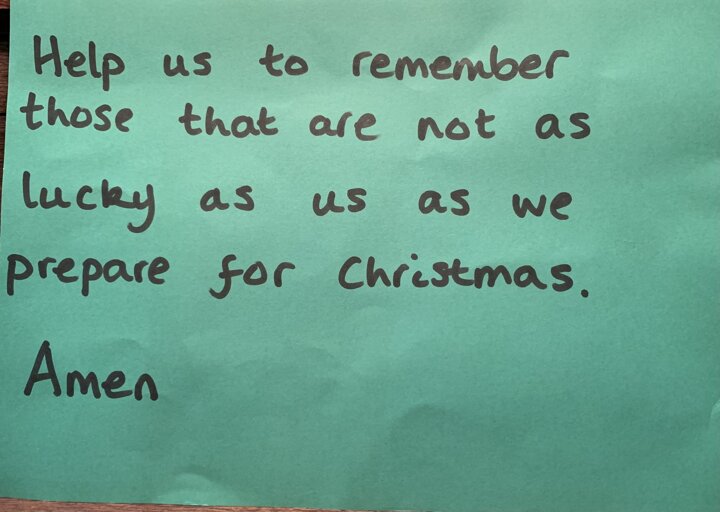 Help us to remember
those that are not as
lucky as us as we
prepare for Christmas.
Amen